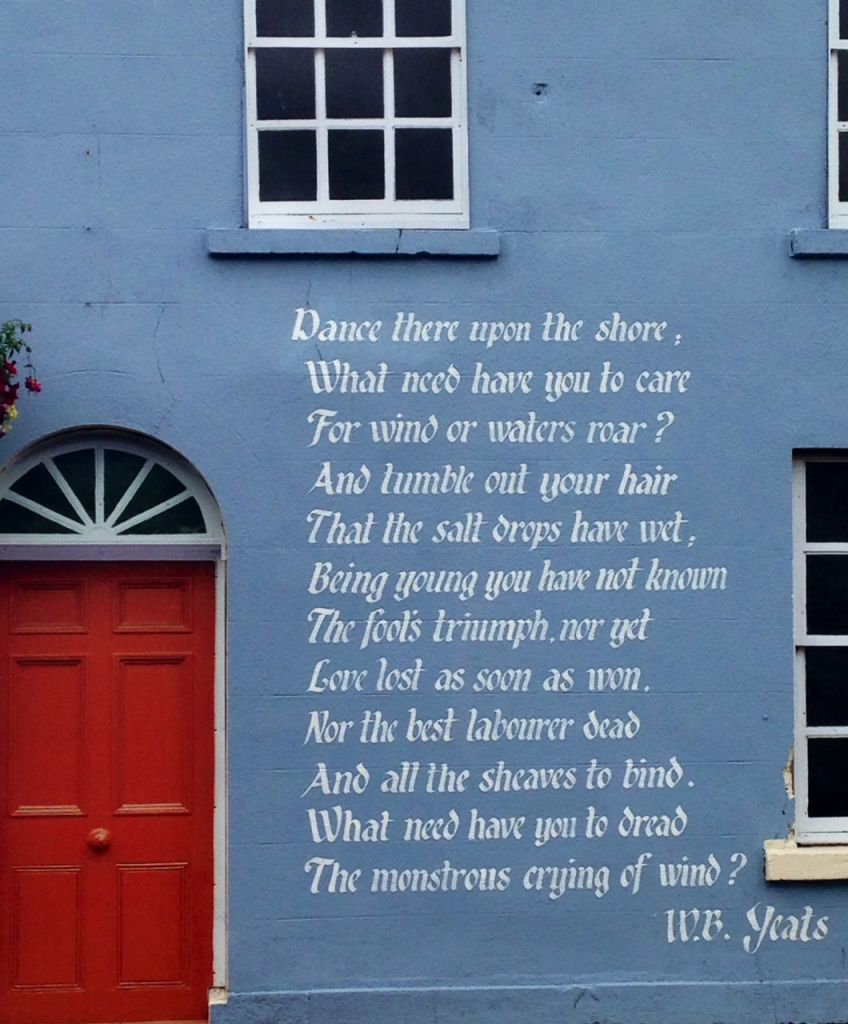 Dance there upon the shore;
What need have you to care
For wind or waters roar?
And tumble out your hair
That the salt drops have wet;
Being young you have not known
The fool's triumph, nor yet
Love lost as soon as won.
Nor the best labourer dead
And all the sheaves to bind.
What need have you to dread
The monstrous crying of wind?
W.B. Yeats